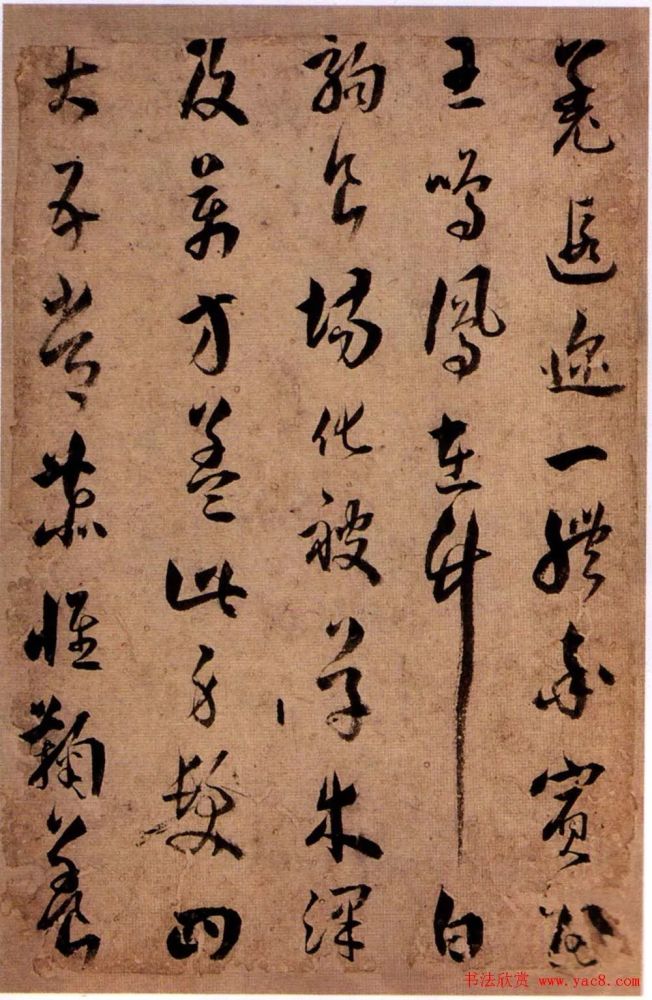 羌遐邇一體率賓歸
王鳴鳳在竹白
駒食場化被草木賴
及萬方蓋此身髮四
大五常恭惟鞠養
书法欣赏 www.yac8.com